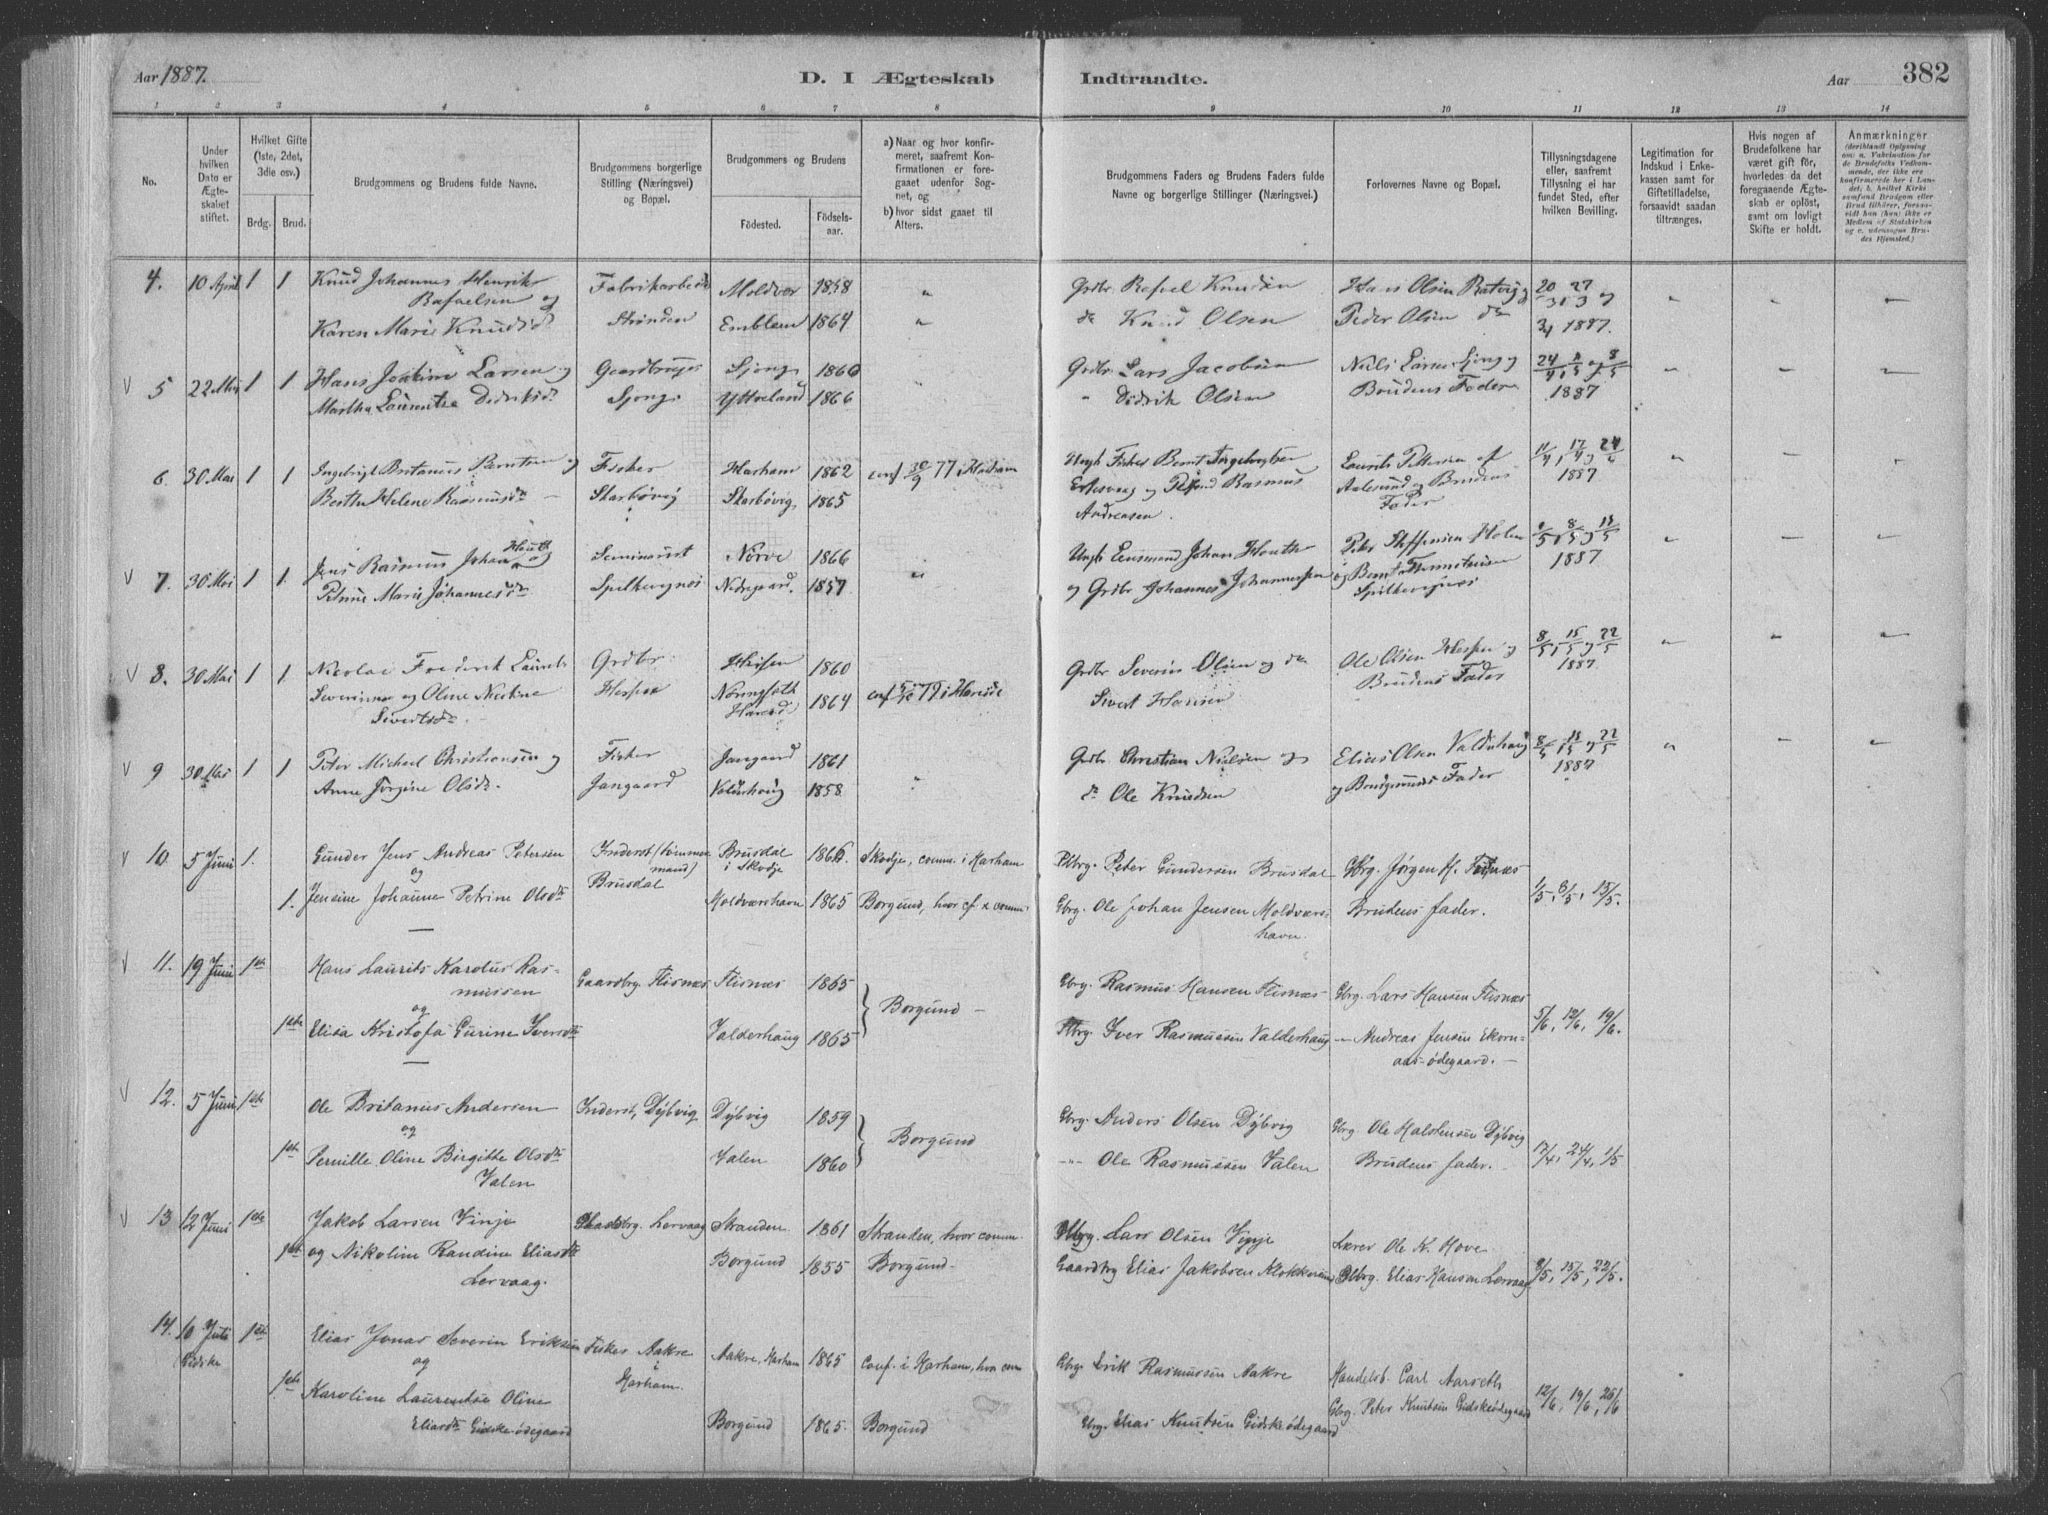 Aar 1887.
D. I Ægteskab Indtraadte.
Aar 382
1 2 3 4 5 6 7 8 9 10 11 12 13 14
No.
Under hvilken Dato er Ægteskabet stiftet.
Hvilket Gifte (1ste, 2det, 3die osv.)
Brdg. Brud.
Brudgommens og Brudens fulde Navne.
Brudgommens borgerlige Stilling (Næringsvei) og Bopæl.
Brudgommers og Brudens
Födested. Födselsaar.
a) Naar og hvor konfirmeret, saafremt Konfirmationen er foregaaet udenfor Sognet, og
b) hvor sidst gaaet til Alters.
Brudgommens Faders og Brudens Faders fulde Navne og borgerlige Stillinger (Næringsvei.)
Forlovernes Navne og Bopæl.
Tillysningsdagene eller, saafremt Tillysning ei har fundet Sted, efter hvilken Bevilling.
Legitimation for Indskud i Enkekassen samt for Giftetilladelse, forsaavidt saadan tiltrænges.
Hvis nogen af Brudefolkene har været gift før, hvorledes da det foregaaende Ægteskab er oplöst, samt om lovligt Skifte er holdt.
Anmærkninger
4. 10 April 1 1 Knud Johannes Henrik Rafaelsen og Fabrikarbeid Moldvær 1858 " Grdbr Rafael Knudsen Hans Olsen Ratvig og 20/3 27/3 og
Karen Marie Knudsd Stranden Emblem 1864 " do Knud Olsen Peder Olsen do 3/4 1887.
V 5 22 Mai 1 1 Hans Joakim Larsen og Gaardbruger Sjong 1860 Grdbr Lars Jacobsen Nils Larsen Sjong og 24/4 1/5 og 8/5
Martha Laurentse Didriksdr Sjong Ytteland 1866 " Didrik Olsen Brudens Fader 1887
6. 30 Mai 1 1 Ingebrigt Britanus Berntsen og Fisker Harham 1862 conf 30/9 77 i Harham Ungk Fisker Bernt Ingebrigtsen Laurits Pettersen af
Berthe Helene Rasmusdr Skarbøvig Skarbövig 1865 og Rasmus Andreasen. Aalesund og Brudens Fader 1887
V 7. 30 Mai 1 1. Jens Rasmus Johan Houth og Seminarist Nörve 1866 " Ungk Johan Houth Peter Steffensen Holen 1/5, 8/5 og 15/5
Petrine Marie Johannesdr Spilkevignes Nedregaard. 1857 og Grdbr Johannes Johannessen og Bernt Spilkevignes 1887
V 8. 30 Mai 1 1 Nicolai Frederik Laurits Grdbr. 1860 Grdbr Severin Olsen og do Ole Olsen Hesseen og 8/5, 15/5 og 22/5
Severinsen og Oline Nicoline Sivertsdr. 1864 conf 79 i Hareide Sivert Hansen Brudens Fader 1887.
V 9 30 Mai 1 1 Peter Michael Christiansen og Fisker Jangaard 1861 Grdbr Christian Nielsen og Elias Olsen Valderhaug 8/5, 15/5 og 22/5
Anne Jörgine Olsdr. Jangaard Valderhaug 1858 " do Ole Knudsen og Brudgommens Fader 1887
V 10. 5 Juni 1. Gunder Jens Andreas Petersen Inderst (tømmermand) Brusdal i Skodje 1866. Skodje, comm. i Harham Plbrg. Peter Gundersen Brusdal Gbrg. Jørgen H. Flisnæs
og Brusdal 1/5, 8/5, 15/5.
1. Jensine Johanne Petrine Olsdtr Moldværshavn 1865 Borgund, hvor cf. x comm. Gbrg. Ole Johan Jensen Moldværshavn. Brudens fader.
V 11. 19 Juni 1ste Hans Laurits Karolus Rasmussen Gaardbrg. Flisnæs Flisnæs 1865 Borgund — Gbrg. Rasmus Hansen Flisnæs Gbrg. Lars Hansen Flisnæs
og 5/6, 12/6, 19/6.
1ste Elisa Kristofa Gurine Iversdtr Valderhaug 1865 Gbrg. Iver Rasmussen Valderhaug — Andreas Jensen Ekornaas-ødegaard. —
V 12. 5 Juni 1ste Ole Britanus Andersen Inderst, Dÿbvig Dÿbvig 1859 Borgund Gbrg. Anders Olsen Dÿbvig Gbrg. Ole Halstensen Dÿbvig
og 17/4, 24/4, 1/5
1ste Pernille Oline Birgitte Olsdtr Valen Valen 1860 "" Ole Rasmussen Valen Brudens fader. —
V 13 12 Juni 1ste Jakob Larsen Vinje Lervaag Stranden 1861 Stranden, hvor comm. Lars Olsen Vinje Lærer Ole K. Hove
1ste og Nikoline Randine Eliasdtr Lervaag. Borgund 1855 Borgund — Gaardbrg Elias Jakobsen Klokkersund Elias Hansen Lervaag 8/5, 15/5, 22/5.
14. 10 Juli Gidske 1ste Elias Jonas Severin Eriksen Fisker Aakre i Harham. Aakre, Harham 1865 Conf. i Harham, hvor com Gbrg. Erik Rasmussen Aakre Handelsb. Carl Aarseth
og 12/6, 19/6, 26/6
1ste Karoline Laurentse Oline Eliasdtr Gidske-ødegaard Borgund 1865. Borgund Gbrg. Elias Knutsen Gidskeødegaard Gbrg. Peter Knutsen Gidskeødegaard